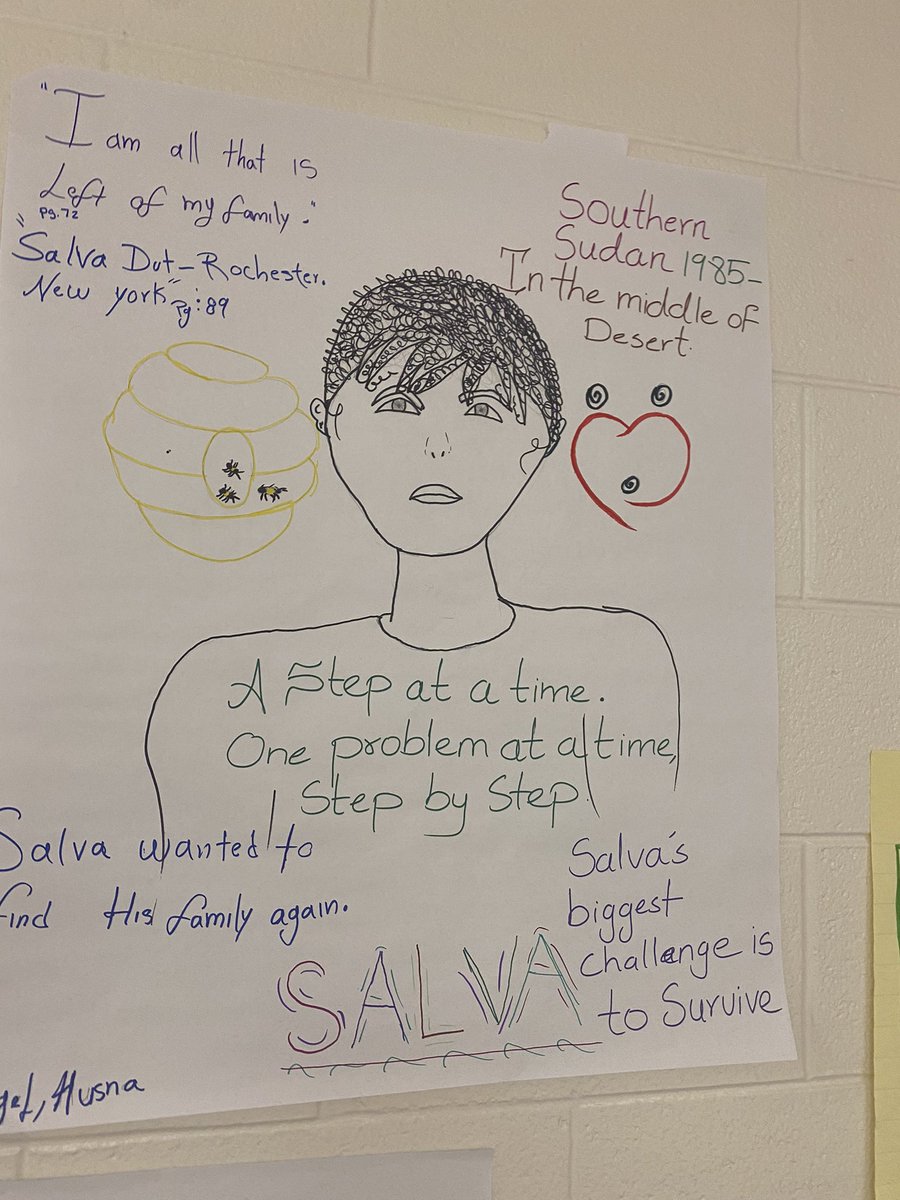 "I am all that is
Left of my family."
Pg.72
"Salva Dut-Rochester.
New york" Pg:89
Southern
Sudan 1985-
In the middle of
Desert.
A Step at a time.
One problem at a time,
Step by Step.
Salva wanted to
find His family again.
Salva's
biggest
challenge is
to Survive
SALVA
Husna